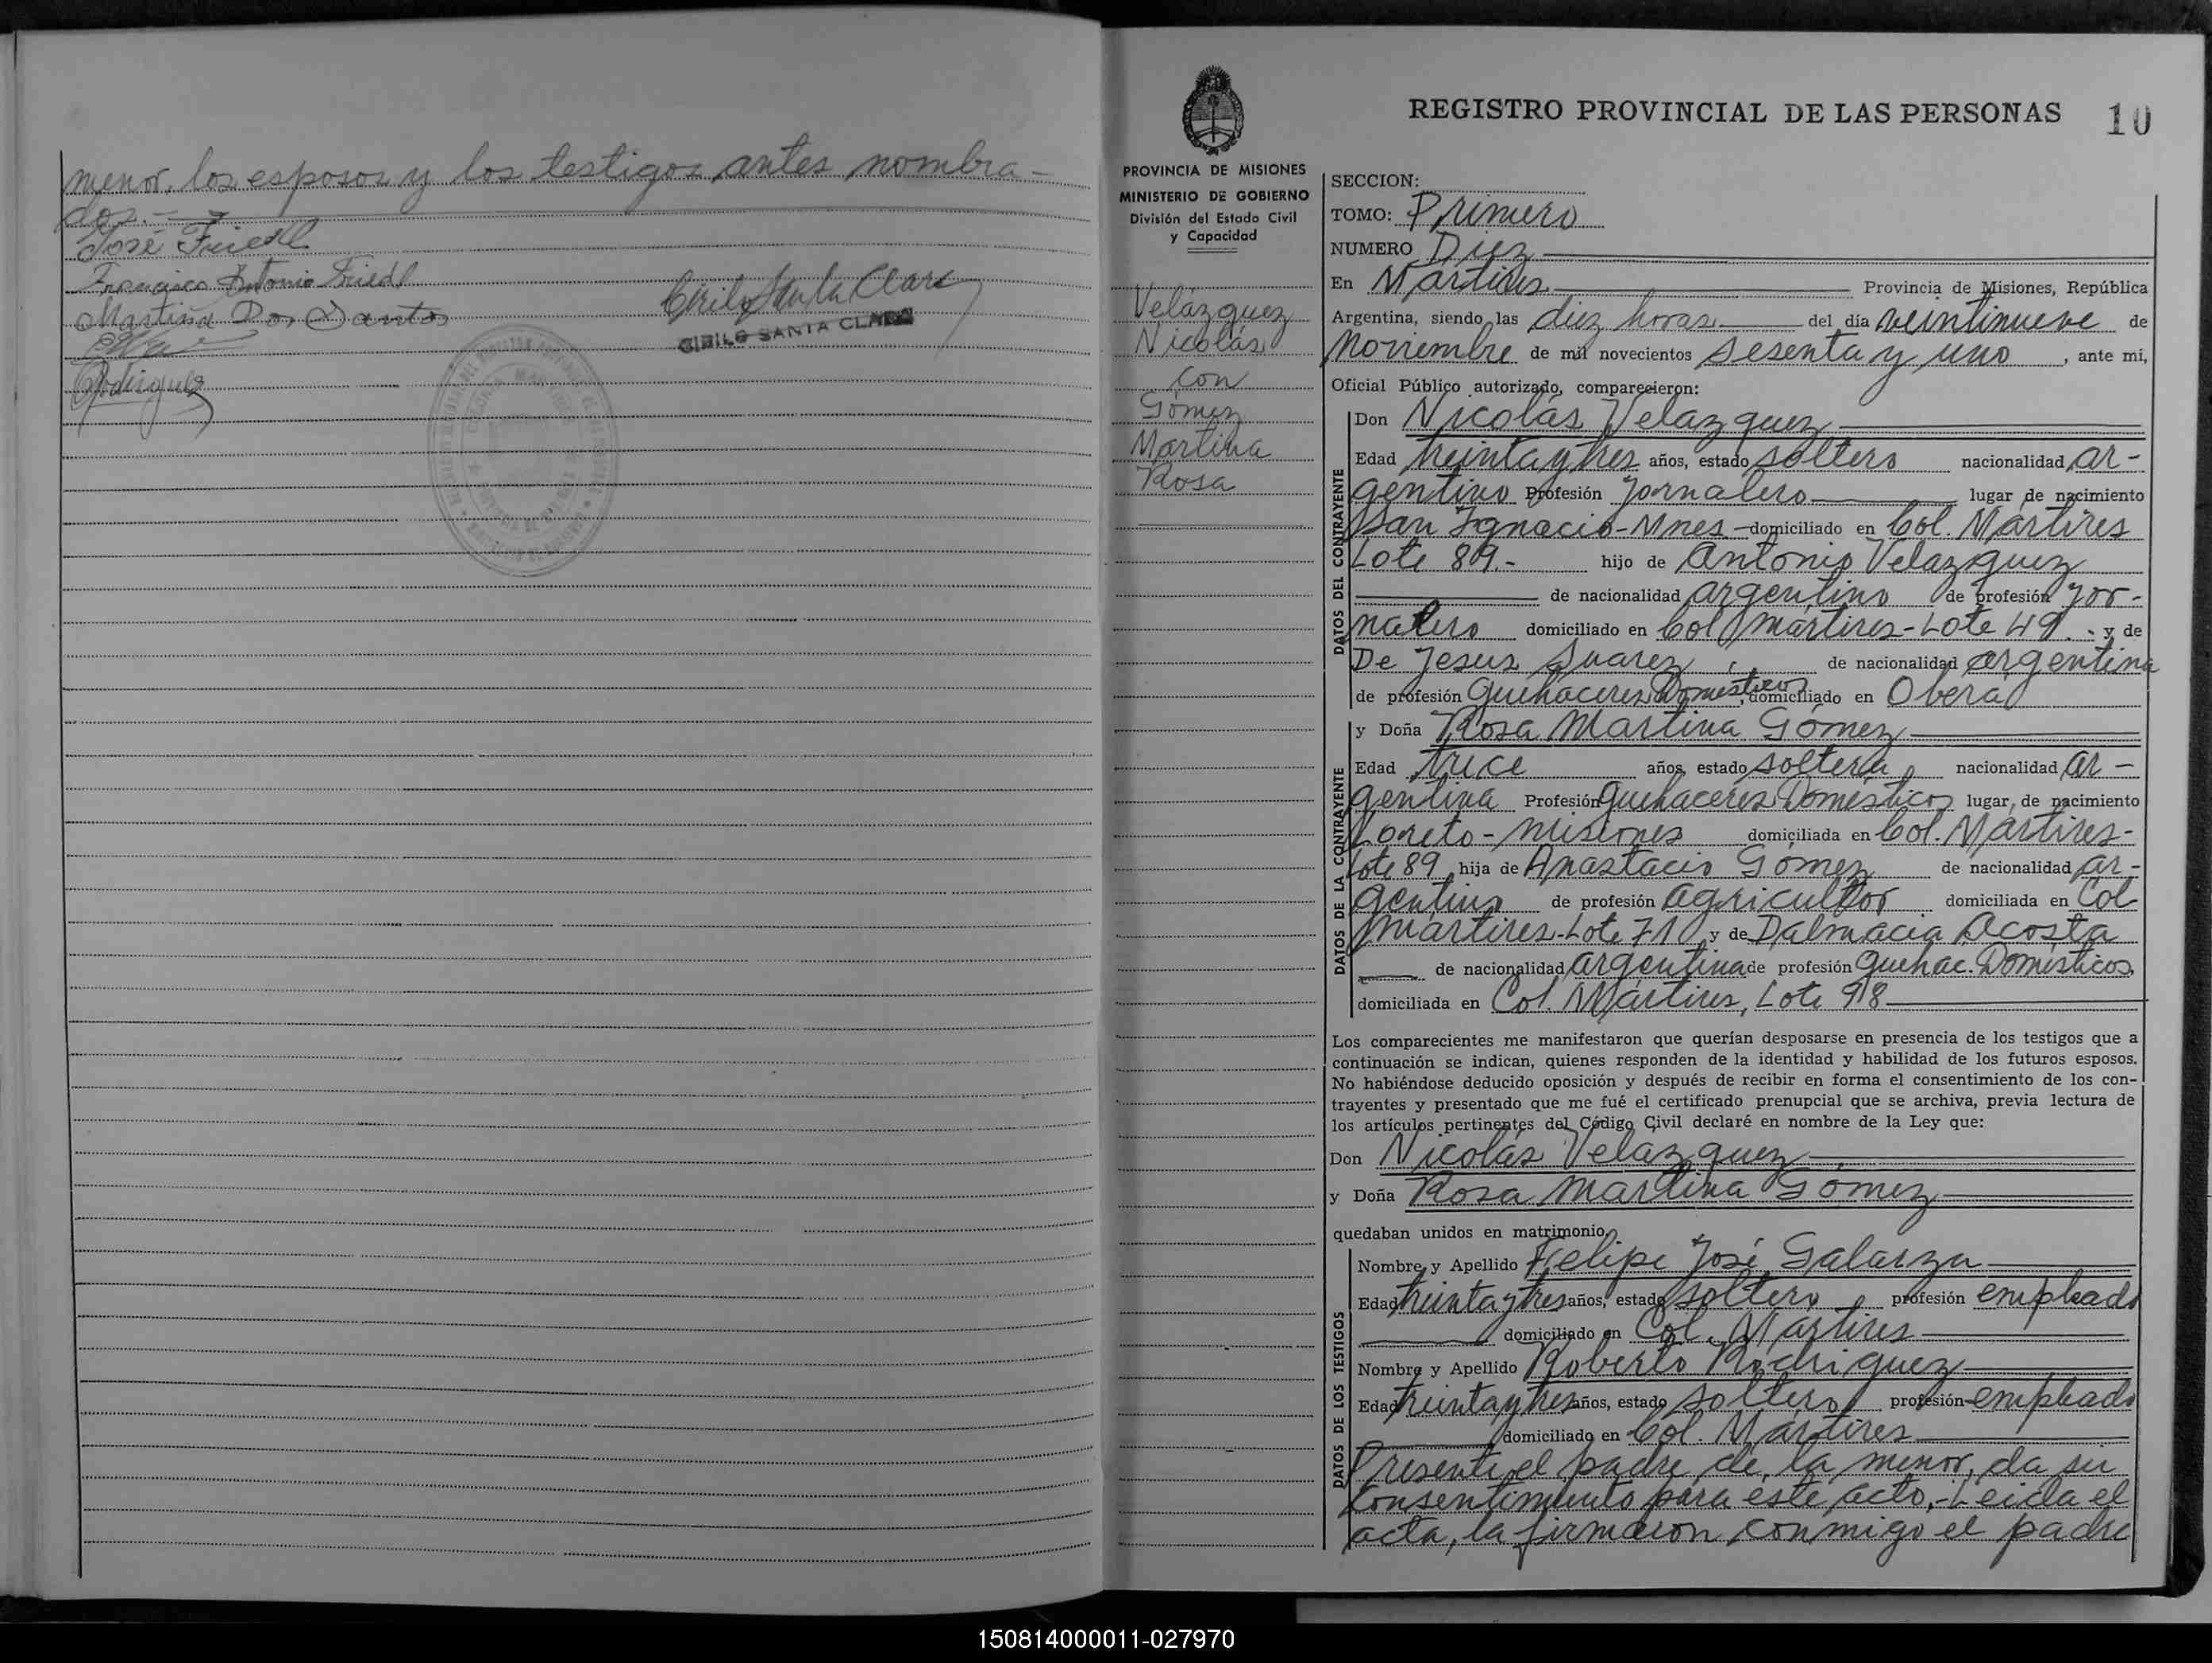 menor, los esposos y los testigos antes nombra-
dos.-
José Friedl
Francisco Antonio Friedl
Martina Dos Santos
Rodriguez
Cirilo Santa Clara
CIRILO SANTA CLARA
PROVINCIA DE MISIONES
MINISTERIO DE GOBIERNO
División del Estado Civil
y Capacidad
Velázquez
Nicolás
con
Gómez
Martina
Rosa
REGISTRO PROVINCIAL DE LAS PERSONAS 10
SECCION:
TOMO: Primero
NUMERO Diez
En Mártires Provincia de Misiones, República
Argentina, siendo las diez horas del día veintinueve de
Noviembre de mil novecientos sesenta y uno, ante mi,
Oficial Público autorizado, comparecieron:
DATOS DEL CONTRAYENTE
Don Nicolás Velazquez
Edad treinta y tres años, estado soltero nacionalidad ar-
gentino Profesión Jornalero lugar de nacimiento
San Ignacio-Mnes- domiciliado en Col. Mártires
Lote 89.- hijo de Antonio Velazquez
de nacionalidad argentino de profesión jor-
nalero domiciliado en Col Mártires-Lote 49. y de
De Jesus Suarez, de nacionalidad argentina
de profesión quehaceres Domésticos, domiciliado en Oberá
DATOS DE LA CONTRAYENTE
y Doña Rosa Martina Gómez
Edad trece años, estado soltera nacionalidad ar-
gentina Profesión quehaceres Domésticos lugar de nacimiento
Loreto-Misiones domiciliada en Col. Mártires-
Lote 89 hija de Anastacio Gómez de nacionalidad ar-
gentino de profesión agricultor domiciliada en Col
Mártires-Lote 71 y de Dalmacia Acosta
de nacionalidad argentina de profesión quehac. Domésticos,
domiciliada en Col. Mártires, Lote 98
Los comparecientes me manifestaron que querían desposarse en presencia de los testigos que a
continuación se indican, quienes responden de la identidad y habilidad de los futuros esposos.
No habiéndose deducido oposición y después de recibir en forma el consentimiento de los con-
trayentes y presentado que me fué el certificado prenupcial que se archiva, previa lectura de
los artículos pertinentes del Código Civil declaré en nombre de la Ley que:
Don Nicolás Velazquez
y Doña Rosa Martina Gómez
quedaban unidos en matrimonio,
DATOS DE LOS TESTIGOS
Nombre y Apellido Felipe José Galarza
Edad treinta y tres años, estado soltero profesión empleado
domiciliado en Col. Mártires
Nombre y Apellido Roberto Rodriguez
Edad treinta y tres años, estado soltero profesión empleado
domiciliado en Col. Mártires
Presente el padre de la menor, da su
consentimiento para este acto,-Leida el
acta, la firmaron conmigo el padre
150814000011-027970